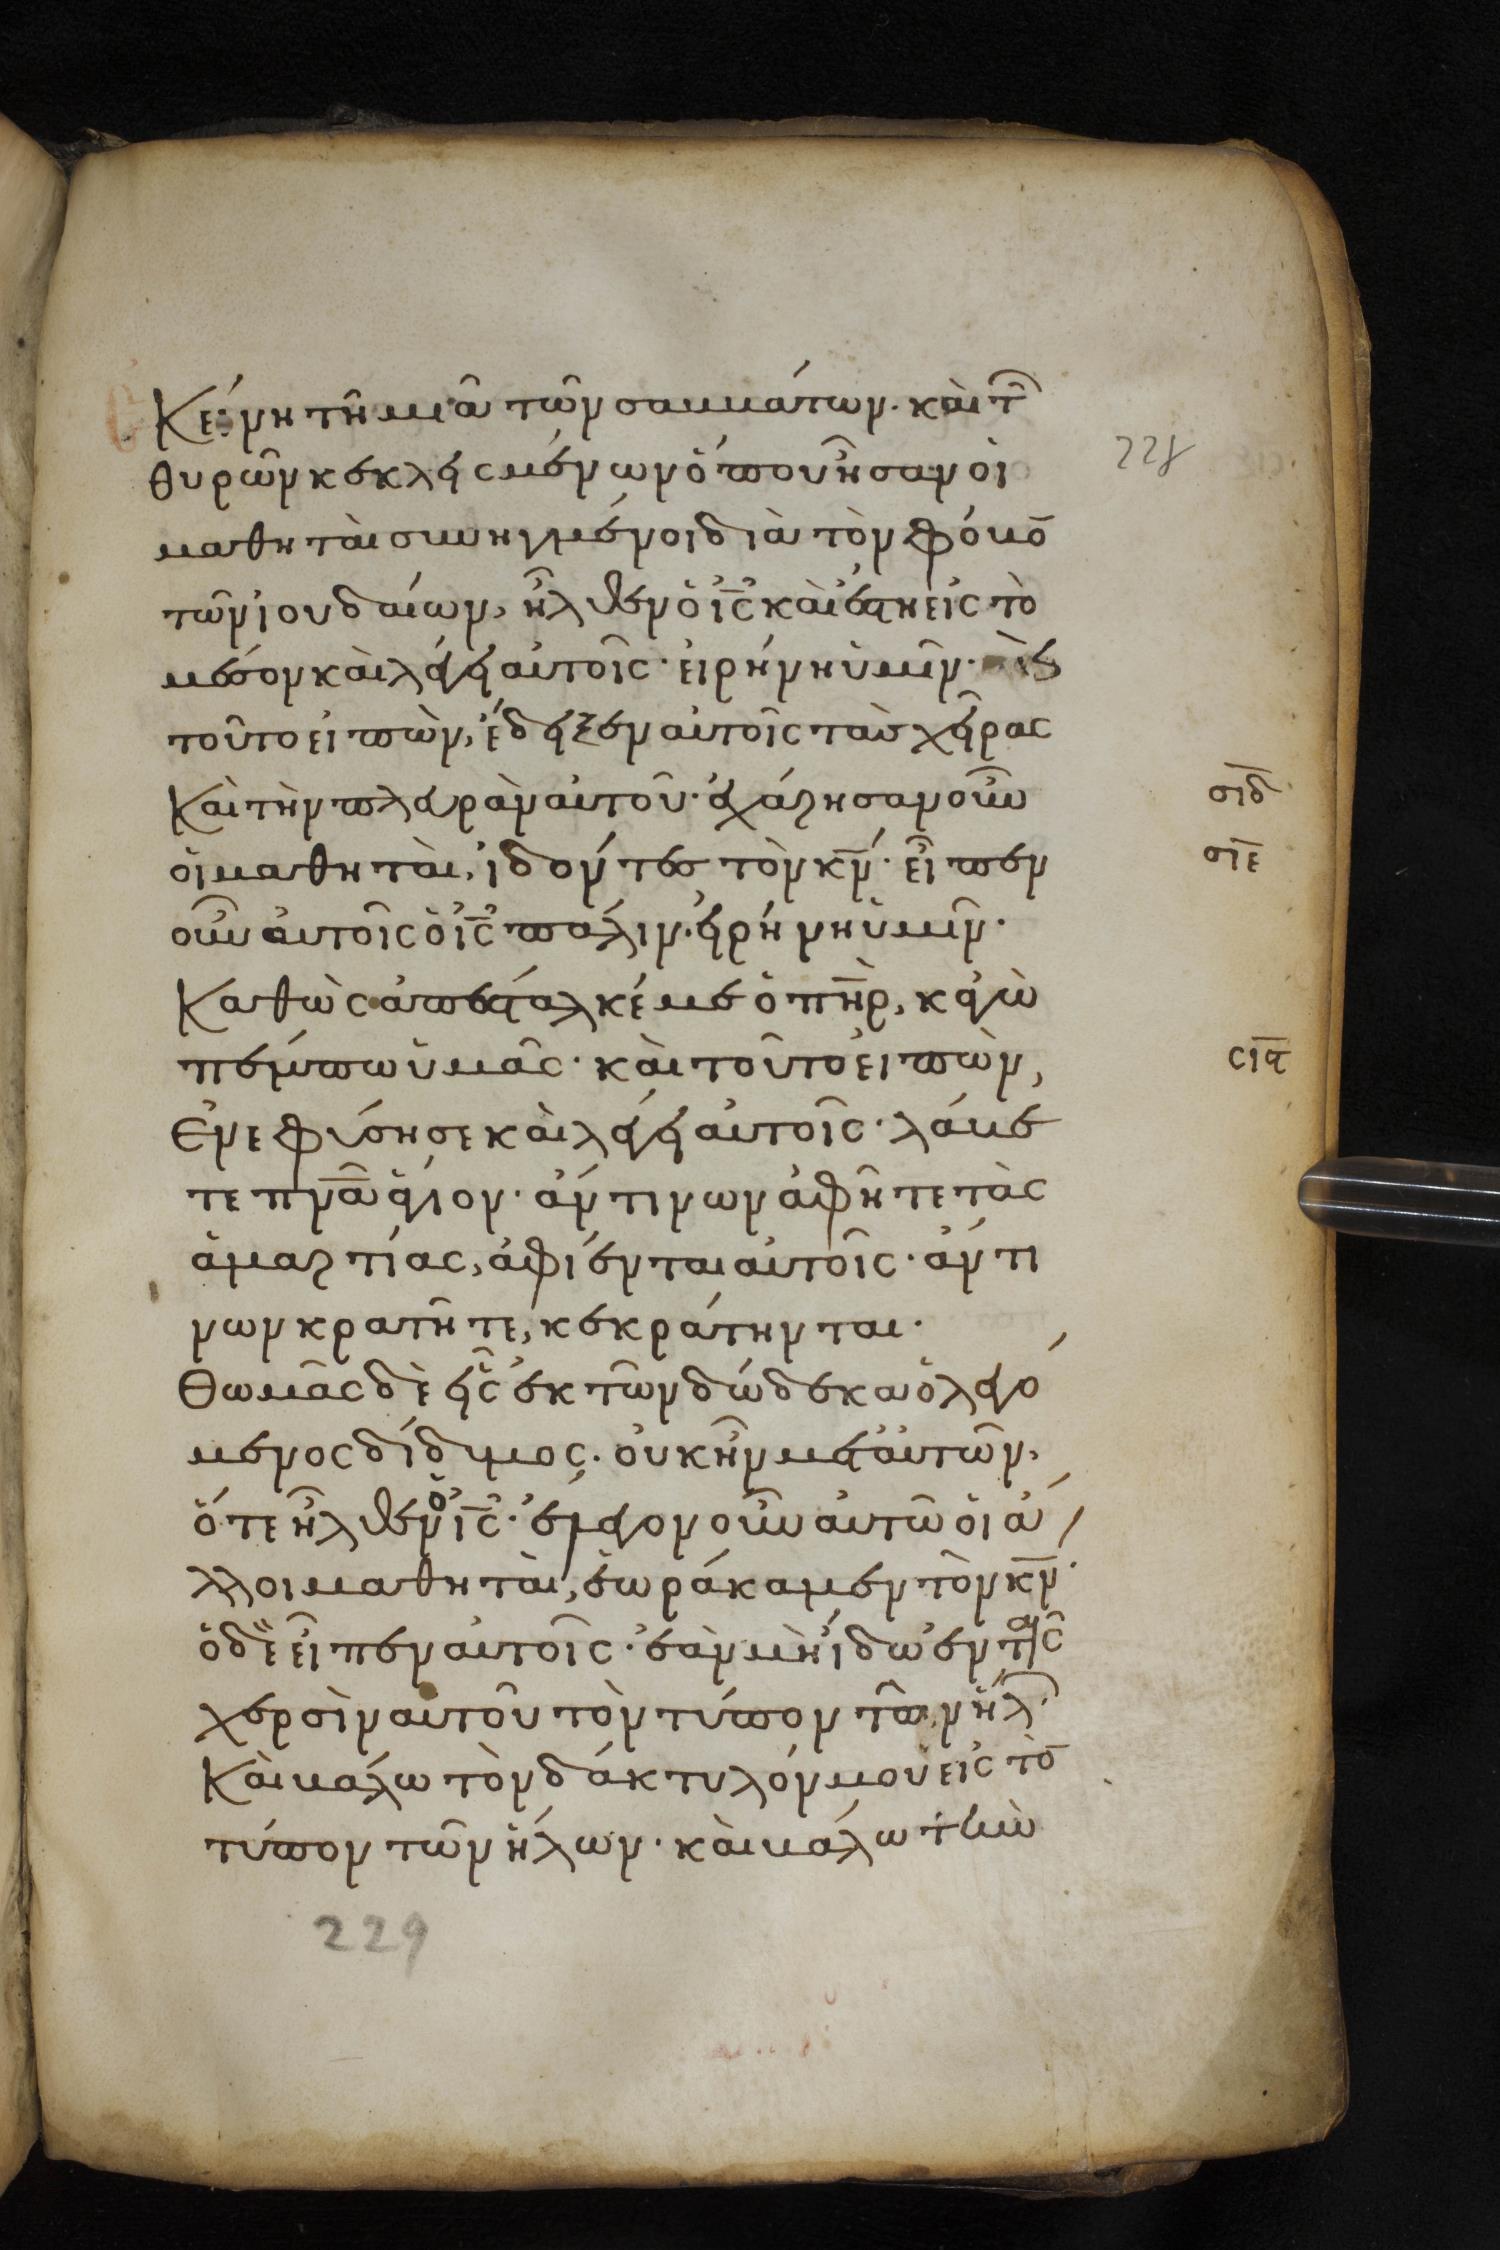 Κείνη τῆ μιᾶ τῶν σαββάτων· καὶ τῶ̑
θυρῶν κεκλεισμένων ὅπου ἦσαν οἱ
228
μαθηταὶ συνηγμένοι διὰ τὸν φόβο̄
τῶν ἰουδαίων, ἦλθεν ὁ ἰ̄ς̄ καὶ ἔστη εἰς τὸ
μέσον καὶ λέγει αὐτοῖς· εἰρήνη ὑμῖν· καὶ
τοῦτο εἰπὼν, ἔδειξεν αὐτοῖς τὰς χεῖρας
καὶ τὴν πλευρὰν αὐτοῦ· ἐχάρησαν οὖν
σ̄ῑδ̄
οἱ μαθηταὶ, ἰδόντες τὸν κ̄ν̄· εἶπεν
σ̄ῑε̄
οὖν αὐτοῖς ὁ ἰ̄ς̄ πάλιν· εἰρήνη ὑμῖν·
Καθὼς ἀπέσταλκέ με ὁ π̄η̄ρ̄, κἀγὼ
πέμπω ὑμᾶς· καὶ τοῦτο εἰπὼν,
σ̄ῑϛ̄
Ἐνεφύσησε καὶ λέγει αὐτοῖς· λάβε
τε π̄ν̄ᾱ ἅγιον· ἄν τινων ἀφῆτε τὰς
ἁμαρτίας, ἀφίενται αὐτοῖς· ἄν τι
νων κρατῆτε, κεκράτηνται·
Θωμᾶς δὲ εἷς ἐκ τῶν δώδεκα ὁ λεγό
μενος δίδυμος· οὐκ ἦν μετ αὐτῶν,
ὅτε ἦλθεν ὁ ἰ̄ς̄· ἔλεγον οὖν αὐτῶ οἱ ἄ
λλοι μαθηταὶ, ἑωράκαμεν τὸν κ̄ν̄·
ὁ δὲ εἶπεν αὐτοῖς· ἐὰν μὴ ἴδω ἐν ταῖς
χερσὶν αὐτοῦ τὸν τύπον τῶν ἥλ
Καὶ βάλω τὸν δάκτυλόν μου εἰς τὸ̄
τύπον τῶν ἥλων· καὶ βάλω τὴν
229